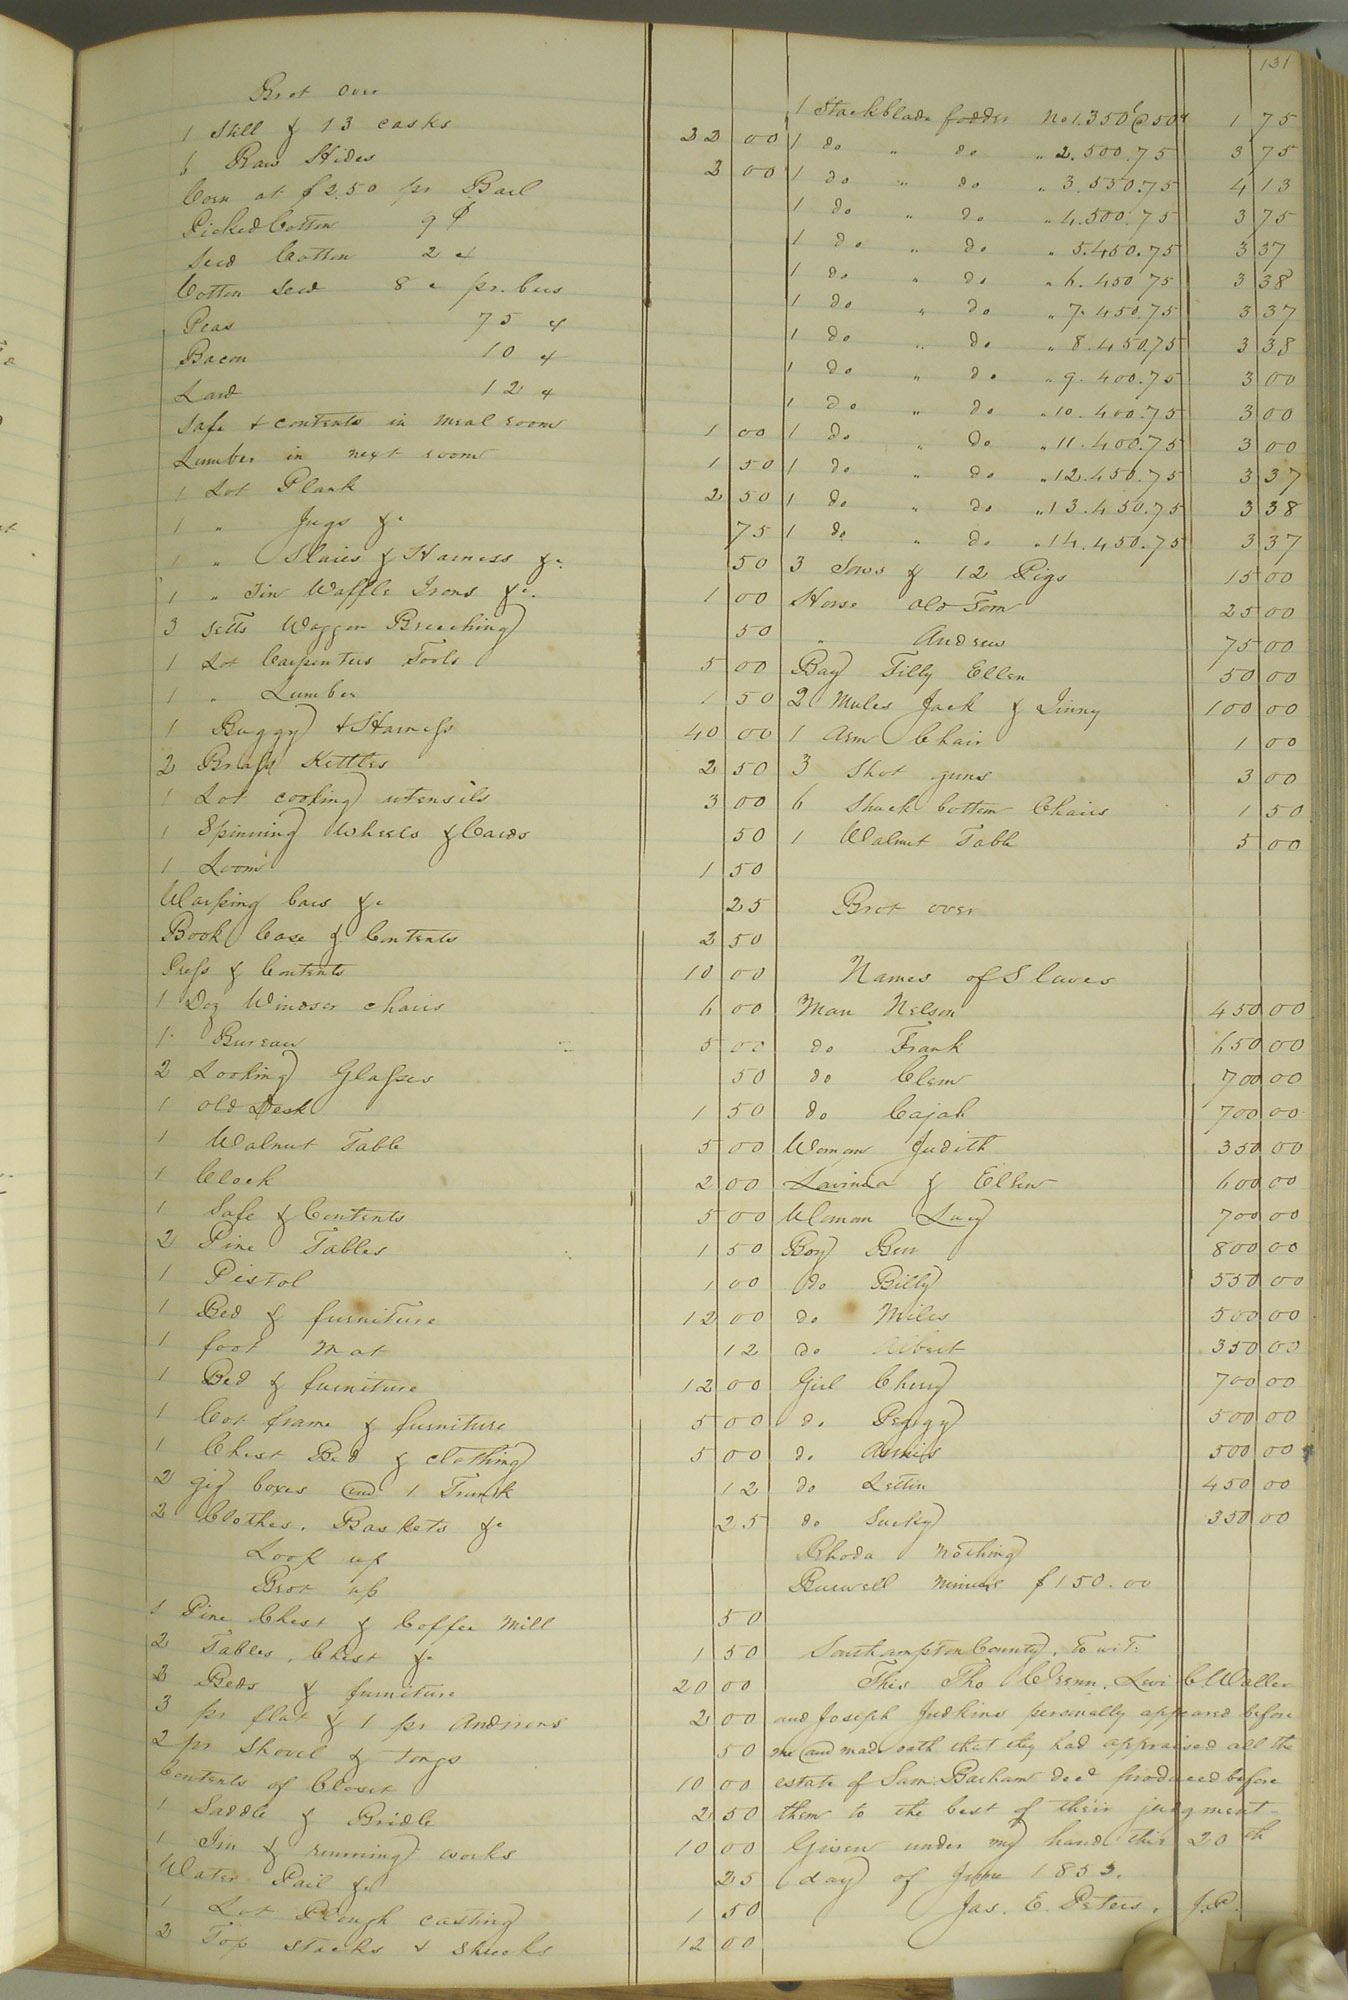 131
Brot over
1 Still & 13 casks 22 00
6 Raw Hides 3 00
Corn at $2.50 pr Barl
Picked Cotton 9 ¢
Seed Cotton 2 "
Cotton Seed 8 " pr. bus
Peas 75 "
Bacon 10 "
Lard 12 "
Safe & contents in meal room 1 00
Lumber in next room 1 50
1 Lot Plank 2 50
1 " Jugs &c 75
1 " Slaies & Harness &c. 50
1 " Tin Waffle Irons &c. 1 00
3 setts Waggon Breeching 50
1 Lot Carpenters Tools 5 00
1 " Lumber 1 50
1 Buggy & Harness 40 00
2 Brass Kettles 2 50
1 Lot cooking utensils 3 00
1 Spinning Wheels & Cards 50
1 Loom 1 50
Warping bars &c 25
Book Case & Contents 2 50
Press & Contents 10 00
1 Doz Windsor chairs 6 00
1 Bureau 5 00
2 Looking Glasses 50
1 old Desk 1 50
1 Walnut Table 5 00
1 Clock 2 00
1 Safe & Contents 5 00
2 Pine Tables 1 50
1 Pistol 1 00
1 Bed & furniture 12 00
1 foot mat 12
1 Bed & furniture 12 00
1 Cot frame & furniture 5 00
1 Chest Bed & clothing 5 00
2 gig boxes and 1 Trunk 12
2 Clothes. Baskets &c 25
Look up
Brot up
1 Pine Chest & Coffee Mill 50
2 Tables, Chest &c 1 50
2 Beds & furniture 20 00
3 pr flat & 1 pr Andirons 2 00
2 pr Shovel & tongs 50
Contents of Closet 10 00
1 Saddle & Bridle 2 50
1 Gin & running works 10 00
Water Pail &c. 25
1 Lot Plough casting 1 50
2 Top stacks & shucks 12 00
1 Stack blade fodder No 1. 350 @ 50 1 75
1 do " do " 2. 500. 75 3 75
1 do " do " 3. 550. 75 4 13
1 do " do " 4. 500. 75 3 75
1 do " do " 5. 450. 75 3 37
1 do " do " 6. 450 75 3 38
1 do " do " 7. 450. 75 3 37
1 do " do " 8. 450. 75 3 38
1 do " do " 9. 400. 75 3 00
1 do " do " 10. 400. 75 3 00
1 do " do " 11. 400. 75 3 00
1 do " do " 12. 450. 75 3 37
1 do " do " 13. 450. 75 3 38
1 do " do " 14. 450. 75 3 37
3 Sows & 12 Pigs 15 00
Horse old Tom 25 00
" Andrew 75 00
Bay Filly Ellen 50 00
2 Mules Jack & Jinny 100 00
1 Arm Chair 1 00
3 Shot guns 3 00
6 Shuck bottom Chairs 1 50
1 Walnut Table 5 00
Brot over
Names of Slaves
Man Nelson 450 00
do Frank 650 00
do Clem 700 00
do Cajah 700 00
Woman Judith 350 00
Lavinia & Ellen 600 00
Woman Lucy 700 00
Boy Ben 800 00
do Billy 550 00
do Miles 500 00
do Albert 350 00
Girl Cherry 700 00
do Peggy 500 00
do 500 00
do Lettie 450 00
do Sucky 350 00
Rhoda Nothing
Burwell minus $150.00
Southampton County, To wit:
This Tho Wrenn, Levi C. Waller
and Joseph Judkins personally appeared before
me and made oath that they had appraised all the
estate of Sam. Barham decd produced before
them to the best of their judgment-
Given under my hand this 20th
day of June 1853.
Jas. E. Peters, J.P.